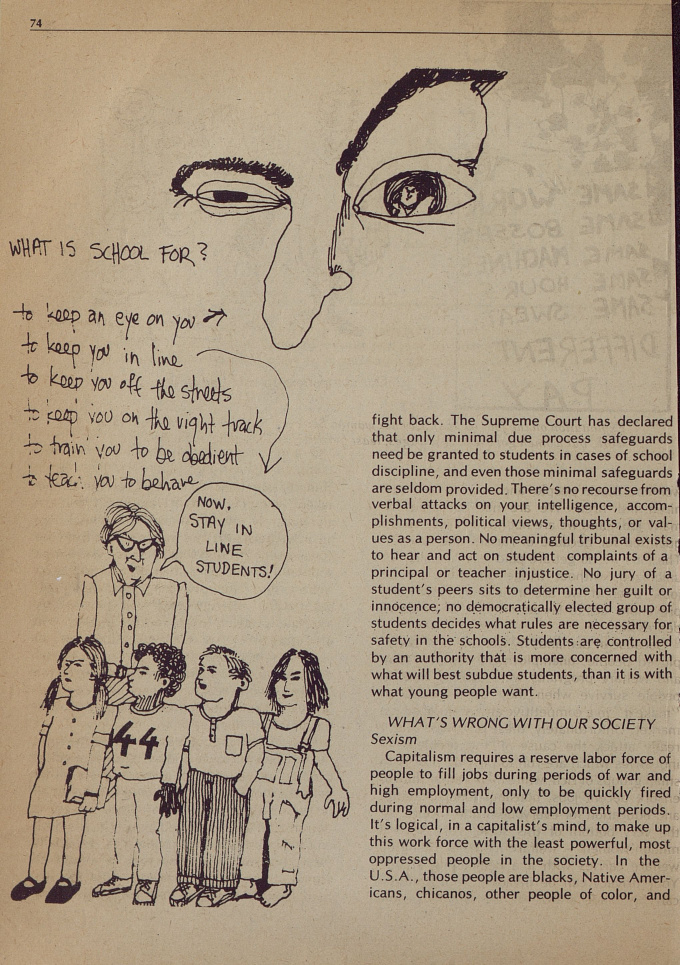 74
WHAT IS SCHOOL FOR?
to keep an eye on you
to keep you in line
to keep you off the streets
to keep you on the right track
to train you to be obedient
to teach you to behave
NOW,
STAY IN
LINE
STUDENTS!
44
fight back. The Supreme Court has declared
that only minimal due process safeguards
need be granted to students in cases of school
discipline, and even those minimal safeguards
are seldom provided. There's no recourse from
verbal attacks on your intelligence, accom-
plishments, political views, thoughts, or val-
ues as a person. No meaningful tribunal exists
to hear and act on student complaints of a
principal or teacher injustice. No jury of a
student's peers sits to determine her guilt or
innocence; no democratically elected group of
students decides what rules are necessary for
safety in the schools. Students are controlled
by an authority that is more concerned with
what will best subdue students, than it is with
what young people want.
WHAT'S WRONG WITH OUR SOCIETY
Sexism
Capitalism requires a reserve labor force of
people to fill jobs during periods of war and
high employment, only to be quickly fired
during normal and low employment periods.
It's logical, in a capitalist's mind, to make up
this work force with the least powerful, most
oppressed people in the society. In the
U.S.A., those people are blacks, Native Amer-
icans, chicanos, other people of color, and
SAME
SAME BOSSES
SAME MACHINE
SAME HOUR
SAME SWEAT
DIFFEREN
PAY